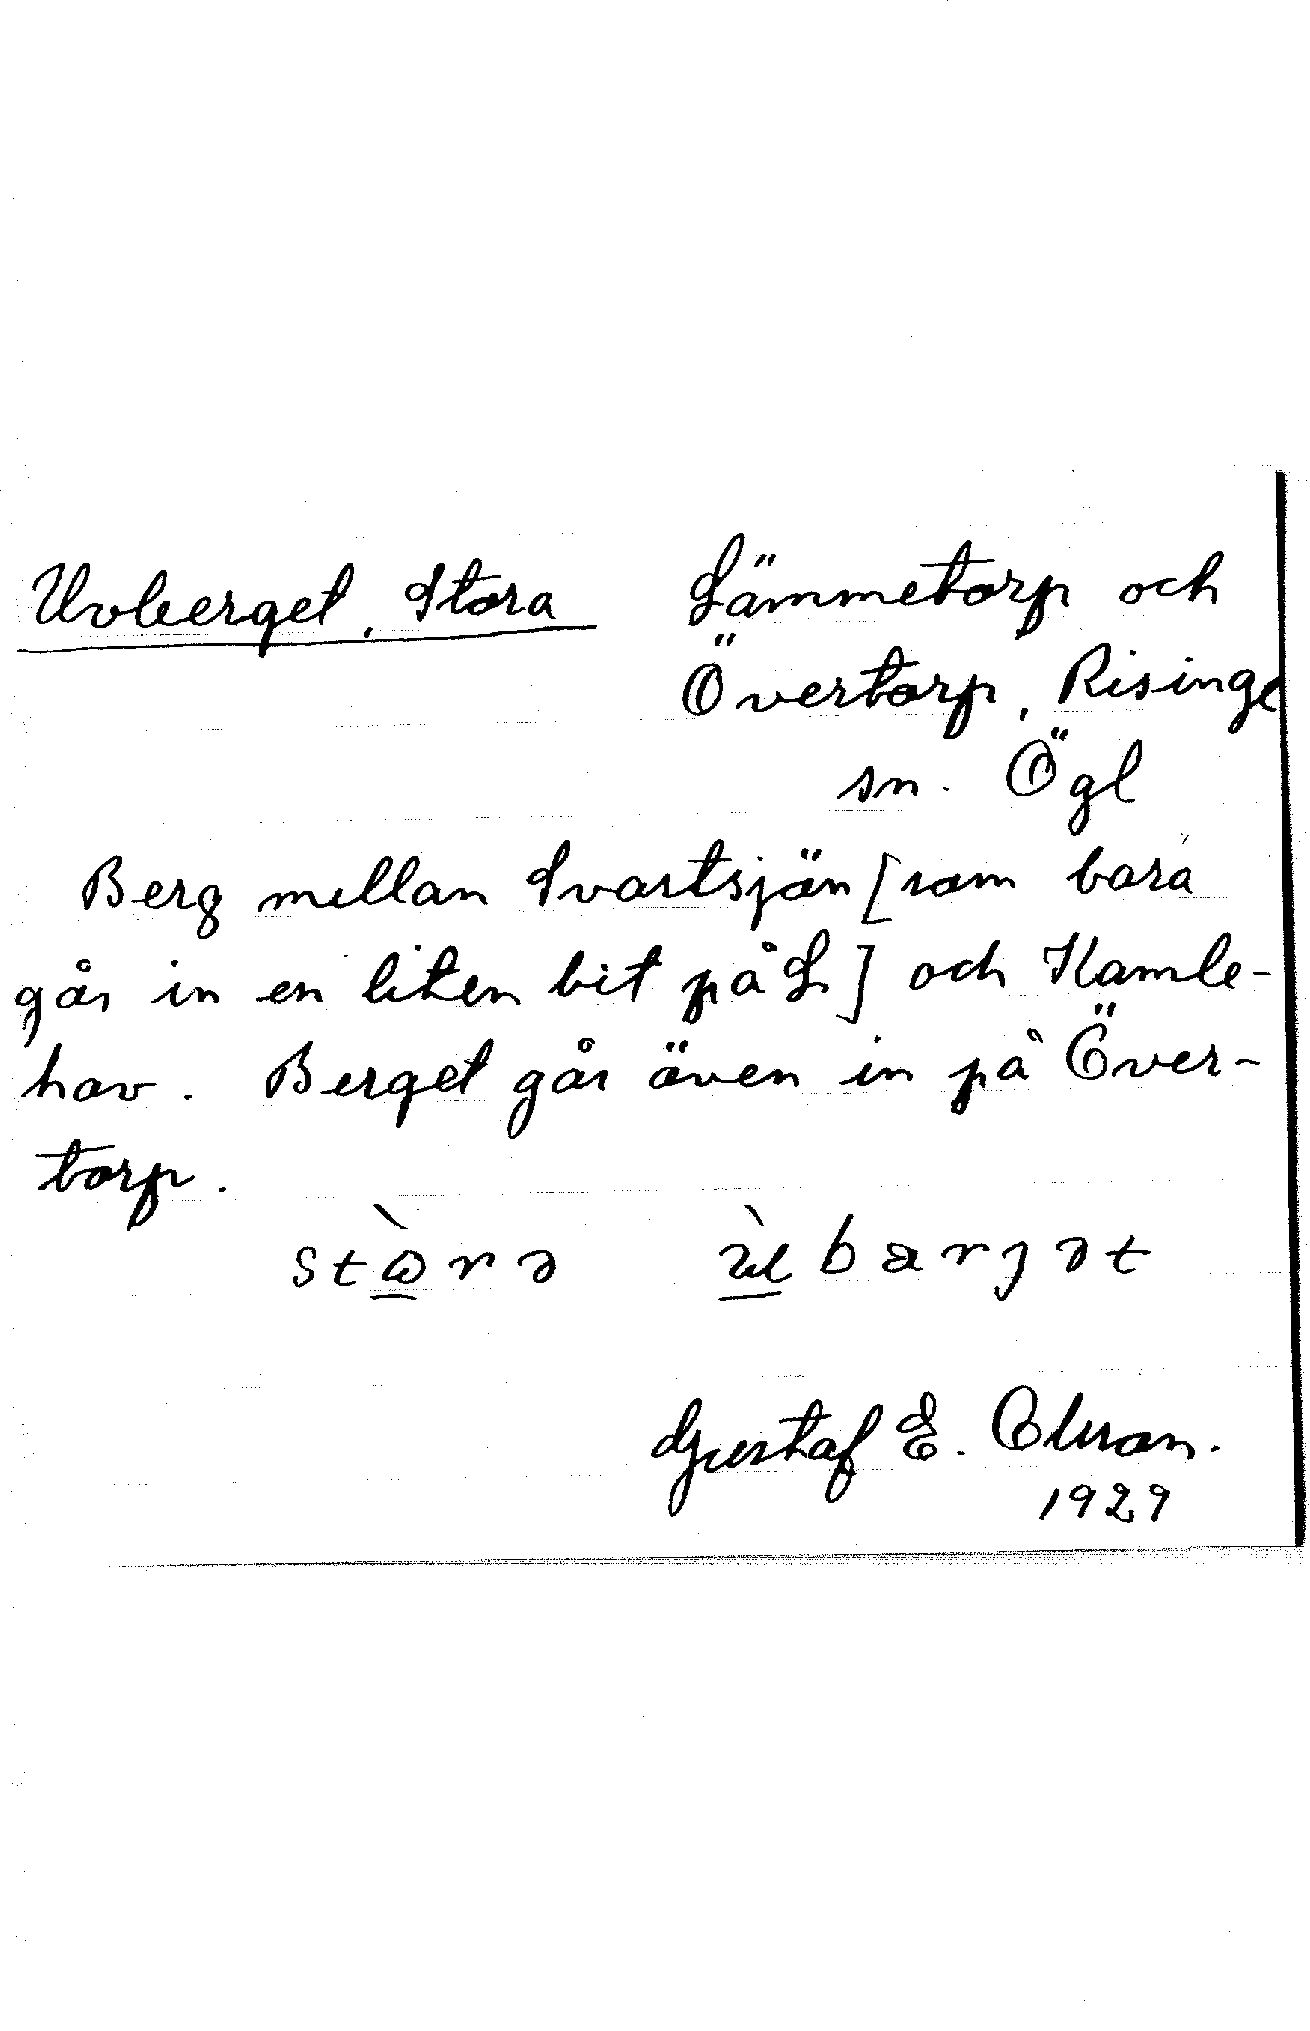 Uvberget, Stora Lämmetorp och
Övertorp, Risinge
sn. Ögl
Berg mellan Svartsjön [som bara
går in en liten bit på L] och Kamle-
hav. Berget går även in på Över-
torp.
Gustaf E. Olsson.
1929